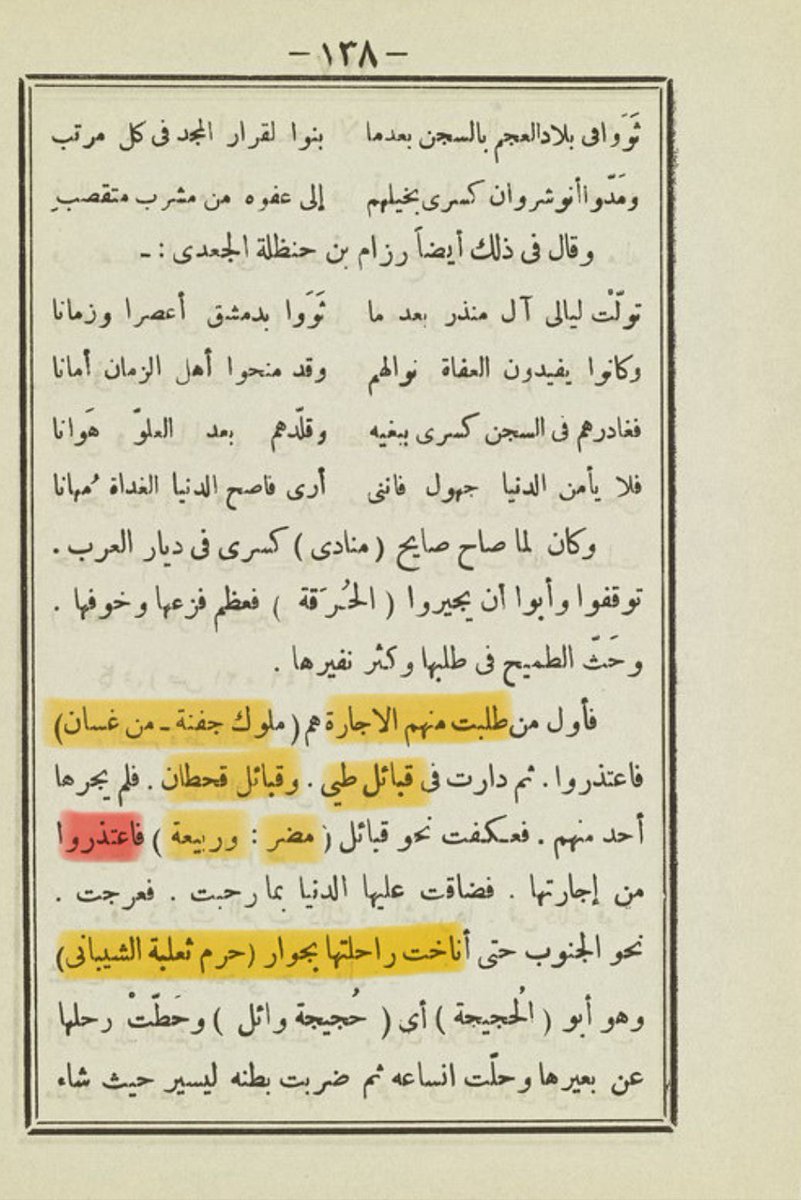 – ١٣٨ –
ثَوَوا فى بلاد العجم بالسجن بعدما بنوا لقرار المجد فى كل مرتب
ومَدّوا أنوشروان كسرى بخيلهم إلى عفوه من مشرب متقصبِ
وقال فى ذلك أيضاً رزام بن حنظلة الجعدى : ـ
تولّتْ ليالى آل منذر بعد ما ثَوَوا بدمشق أعصرا وزمانا
وكانوا يفيدون العفاة نوالهم وقد منحوا أهل الزمان أمانا
فغادرهم فى السجن كسرى ببغيه وقلّدهم بعد العلوّ هَوانا
فلا يأمن الدنيا جهول فاننى أرى فاصح الدنيا الغداة مُهانا
وكان لما صاح صايح ( منادى ) كسرى فى ديار العرب .
توقفوا وأبوا أن يجيروا ( الحُرَقة ) فعظم فزعها وخوفها .
وحَثّ الطميح فى طلبها وكثر نفيرها .
فأول من طلبت منهم الاجارة هم ( ملوك جفنة ـ من غسان )
فاعتذروا . ثم دارت فى قبائل طيى . وقبائل قحطان . فلم يجرها
أحد منهم . فعكفت نحو قبائل ( مضر : وربيعة ) فاعتذروا
من إجارتها . فضاقت عليها الدنيا بما رحبت . فعرجت .
نحو الجنوب حتى أناخت راحلتها بجوار ( حرم ثعلبة الشيبانى )
وهو أبو ( الُحجيجة ) أى ( حُجيجة وائل ) وحَطّتْ رحلها
عن بعيرها وحلّت انساعه ثم ضربت بطنه ليسير حيث شاء